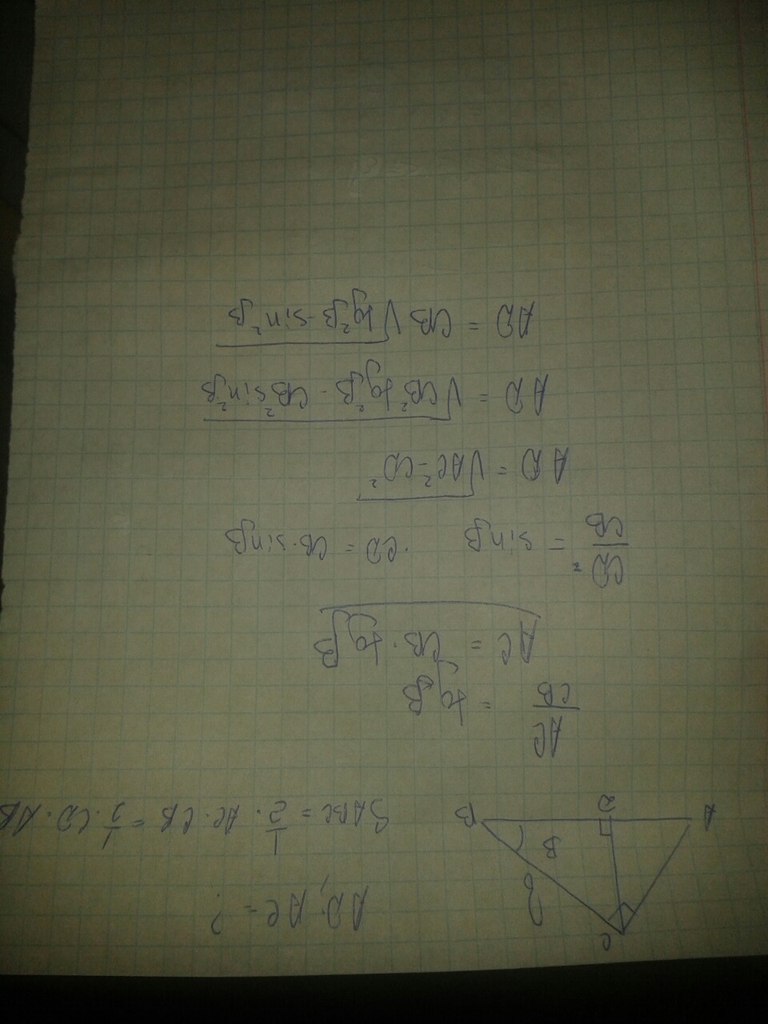 C
AD, AC = ?
β
A D B
S ABC = 1/2 · AC · CB = 1/2 · CD · AB
AC/CB = tgβ
AC = CB · tgβ
CD/CB = sinβ CD = CB · sinβ
AD = √AC² - CD²
AD = √CB² tg²β - CB² sin²β
AD = CB √tg²β - sin²β